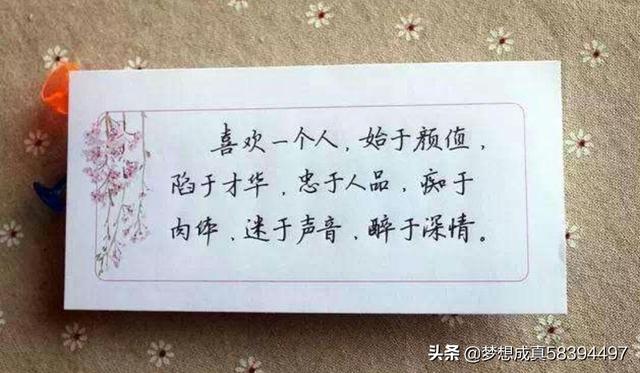 喜欢一个人，始于颜值，
陷于才华，忠于人品，痴于
肉体、迷于声音、醉于深情。
头条 @梦想成真58394497